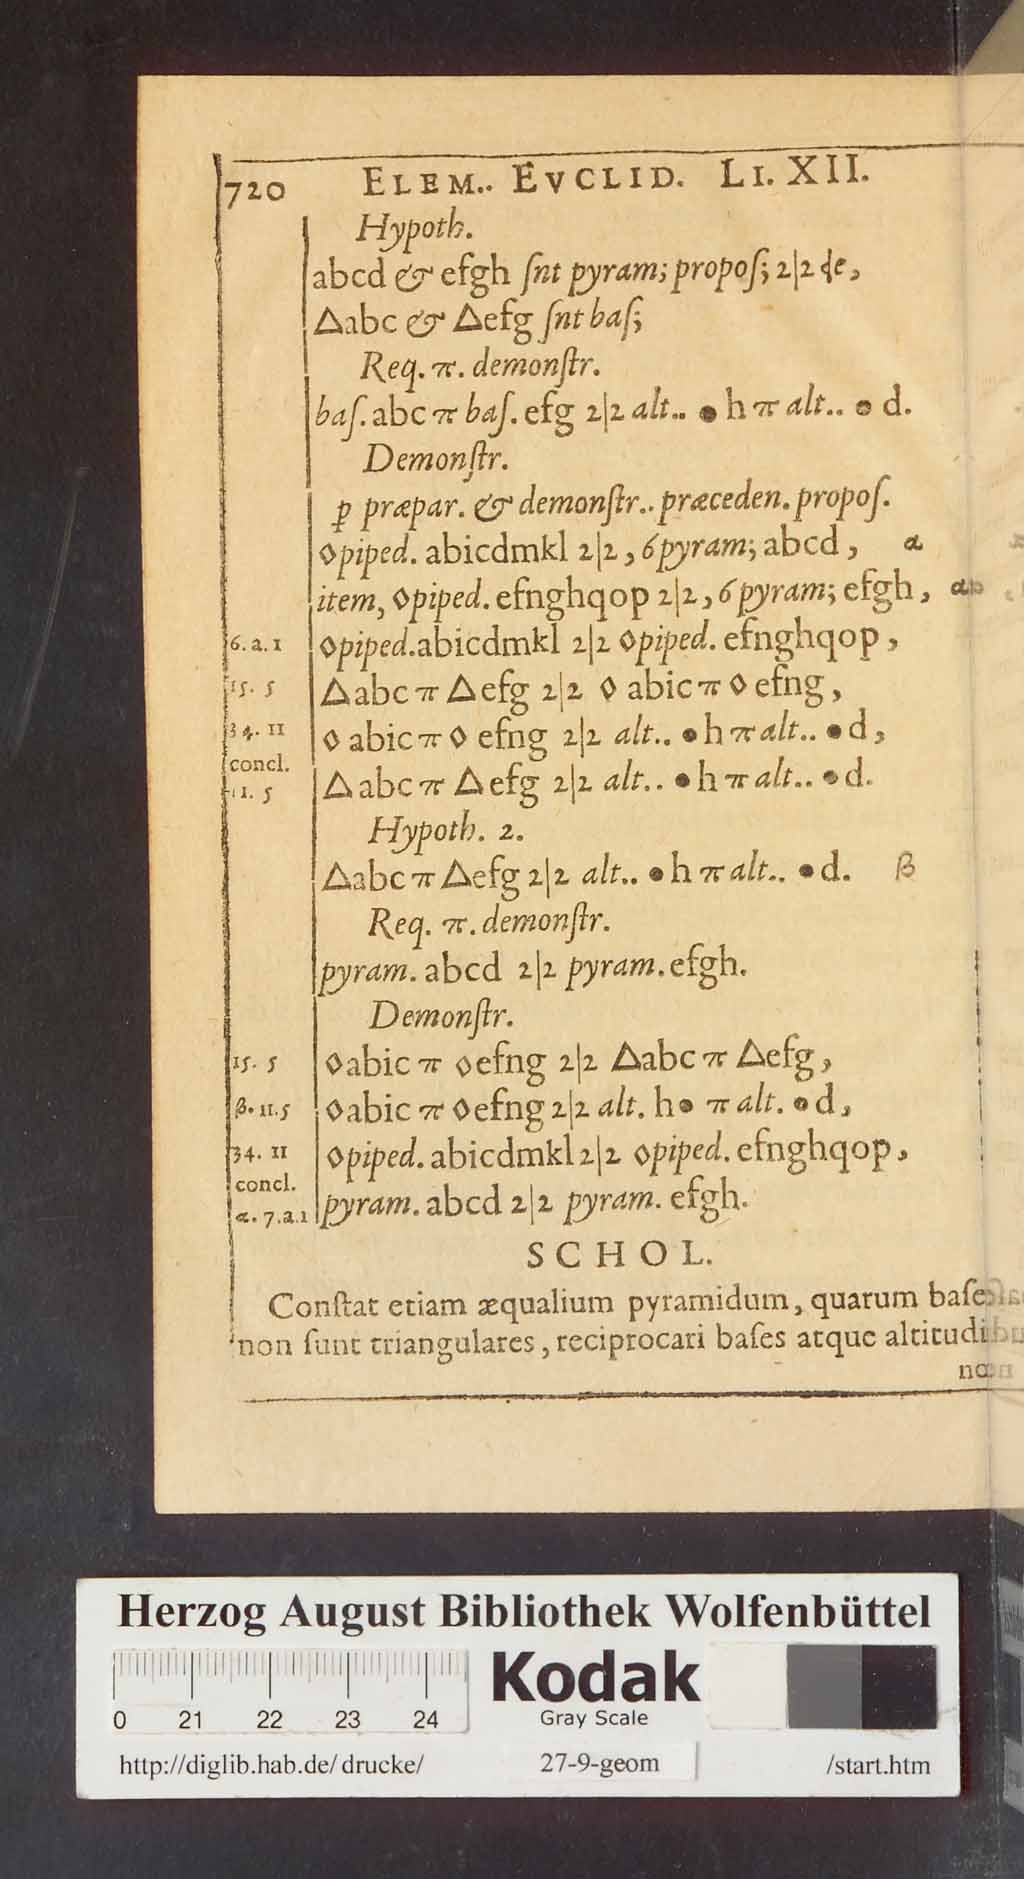 720 ELEM.. EVCLID. LI. XII.
Hypoth.
abcd & efgh ſnt pyram; propoſ; 2|2 de,
Δabc & Δefg ſnt baſ;
Req. π. demonſtr.
baſ. abc π baſ. efg 2|2 alt.. • h π alt.. • d.
Demonſtr.
ꝑ præpar. & demonſtr.. præceden. propoſ.
◊piped. abicdmkl 2|2, 6pyram; abcd, α
item, ◊piped. efnghqop 2|2, 6pyram; efgh,
6. a. 1 ◊piped. abicdmkl 2|2 ◊piped. efnghqop,
15. 5 Δabc π Δefg 2|2 ◊ abic π ◊ efng,
34. 11 ◊ abic π ◊ efng 2|2 alt.. • h π alt.. • d,
concl.
11. 5 Δabc π Δefg 2|2 alt.. • h π alt.. • d.
Hypoth. 2.
Δabc π Δefg 2|2 alt.. • h π alt.. • d. β
Req. π. demonſtr.
pyram. abcd 2|2 pyram. efgh.
Demonſtr.
15. 5 ◊abic π ◊efng 2|2 Δabc π Δefg,
β. 11. 5 ◊abic π ◊efng 2|2 alt. h• π alt. •d,
34. 11 ◊piped. abicdmkl 2|2 ◊piped. efnghqop,
concl.
α. 7. a. 1 pyram. abcd 2|2 pyram. efgh.
SCHOL.
Conſtat etiam æqualium pyramidum, quarum baſes
non ſunt triangulares, reciprocari baſes atque altitudi
Herzog August Bibliothek Wolfenbüttel
0 21 22 23 24
Kodak
Gray Scale
http://diglib.hab.de/drucke/ 27-9-geom /start.htm